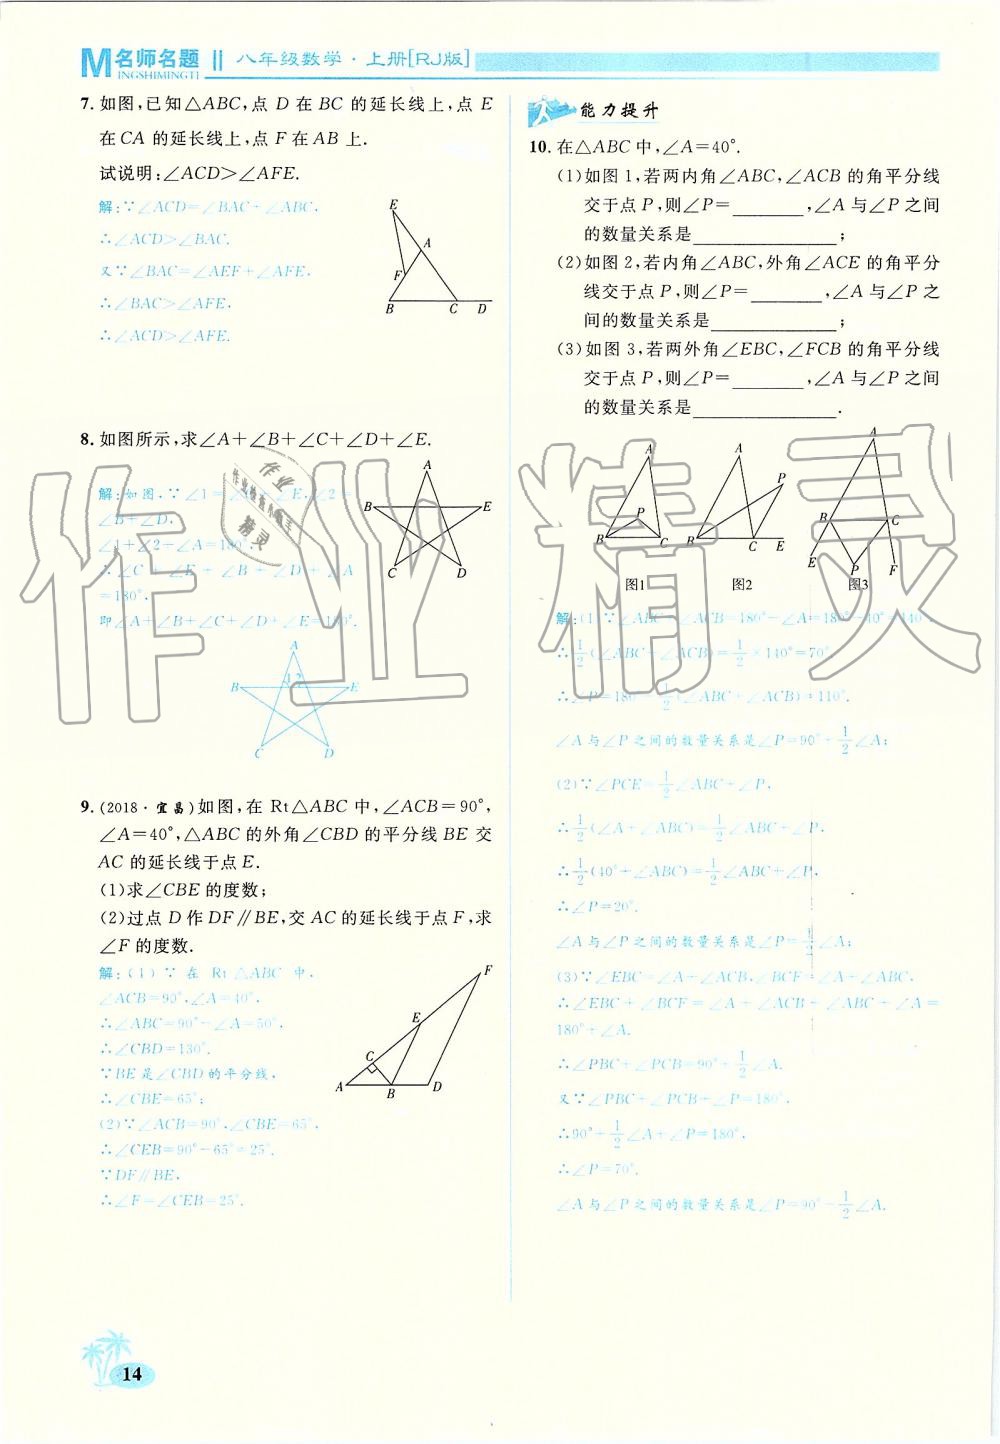 M名师名题 || 八年级数学·上册[RJ版]
INGSHIMINGTI
7. 如图,已知△ABC,点 D 在 BC 的延长线上,点 E
在 CA 的延长线上,点 F 在 AB 上.
试说明:∠ACD>∠AFE.
解:∵∠ACD=∠BAC+∠ABC,
∴∠ACD>∠BAC.
又∵∠BAC=∠AEF+∠AFE,
∴∠BAC>∠AFE,
∴∠ACD>∠AFE.
E
A
F
B C D
8. 如图所示,求∠A+∠B+∠C+∠D+∠E.
解:如图,∵∠1=∠C+∠E,∠2=
∠B+∠D,
∠1+∠2+∠A=180°,
∴∠C+∠E+∠B+∠D+∠A
=180°,
即∠A+∠B+∠C+∠D+∠E=180°.
A
B E
C D
A
B 1 2 E
C D
9. (2018·宜昌)如图,在 Rt△ABC 中,∠ACB=90°,
∠A=40°,△ABC 的外角∠CBD 的平分线 BE 交
AC 的延长线于点 E.
(1)求∠CBE 的度数;
(2)过点 D 作 DF∥BE,交 AC 的延长线于点 F,求
∠F 的度数.
解:(1)∵在 Rt△ABC 中,
∠ACB=90°,∠A=40°,
∴∠ABC=90°−∠A=50°,
∴∠CBD=130°.
∵BE 是∠CBD 的平分线,
∴∠CBE=65°;
(2)∵∠ACB=90°,∠CBE=65°,
∴∠CEB=90°−65°=25°.
∵DF∥BE,
∴∠F=∠CEB=25°.
F
E
C
A B D
能力提升
10. 在△ABC 中,∠A=40°.
(1)如图 1,若两内角∠ABC,∠ACB 的角平分线
交于点 P,则∠P=________,∠A 与∠P 之间
的数量关系是________________;
(2)如图 2,若内角∠ABC,外角∠ACE 的角平分
线交于点 P,则∠P=________,∠A 与∠P 之
间的数量关系是______________;
(3)如图 3,若两外角∠EBC,∠FCB 的角平分线
交于点 P,则∠P=________,∠A 与∠P 之间
的数量关系是________________.
A
P
B C
图1
A
P
B C E
图2
A
B C
E P F
图3
解:(1)∵∠ABC+∠ACB=180°−∠A=180°−40°=140°,
∴1/2(∠ABC+∠ACB)=1/2×140°=70°,
∴∠P=180°−1/2(∠ABC+∠ACB)=110°.
∠A 与∠P 之间的数量关系是∠P=90°+1/2∠A;
(2)∵∠PCE=1/2∠ABC+∠P,
∴1/2(∠A+∠ABC)=1/2∠ABC+∠P,
∴1/2(40°+∠ABC)=1/2∠ABC+∠P,
∴∠P=20°.
∠A 与∠P 之间的数量关系是∠P=1/2∠A;
(3)∵∠EBC=∠A+∠ACB,∠BCF=∠A+∠ABC,
∴∠EBC+∠BCF=∠A+∠ACB+∠ABC+∠A=
180°+∠A.
∴∠PBC+∠PCB=90°+1/2∠A.
又∵∠PBC+∠PCB+∠P=180°,
∴90°+1/2∠A+∠P=180°,
∴∠P=70°.
∠A 与∠P 之间的数量关系是∠P=90°−1/2∠A.
作业精灵
14